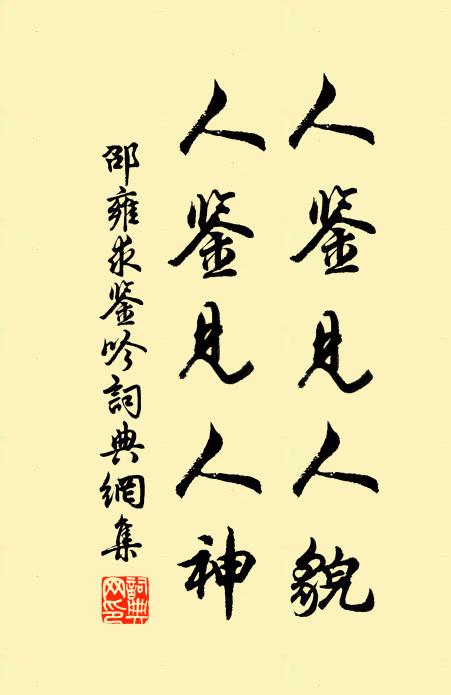 人鉴见人貌
人鉴见人神
邵雍求鉴吟詞典網集
詞典网印